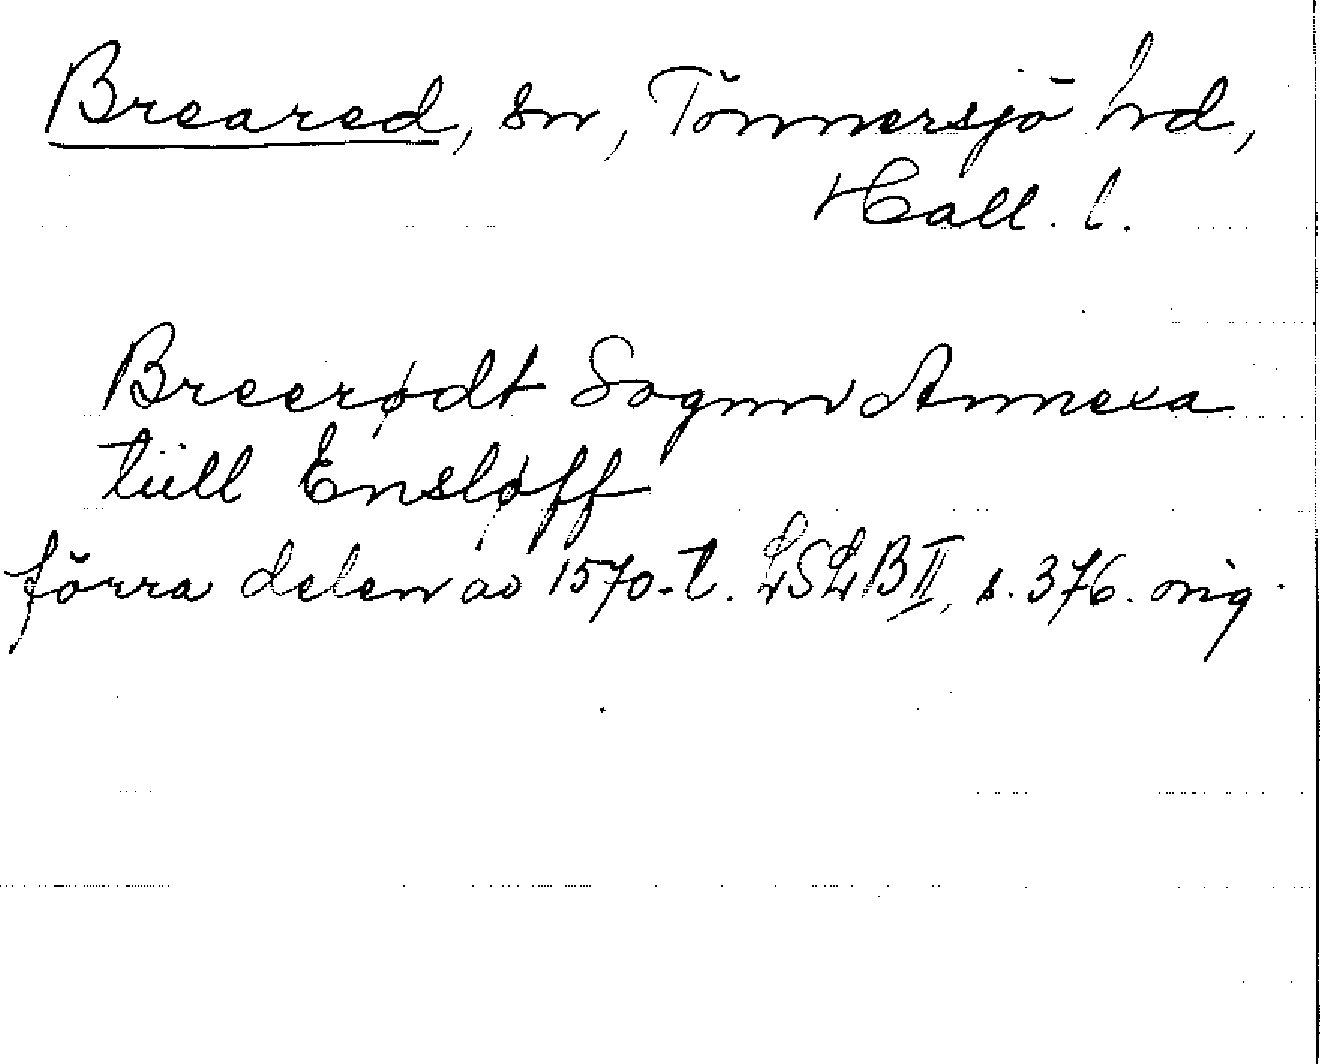 Breared, sn, Tönnersjö hd,
Hall. l.
Breerødt Sogn Annexa
tiill Ensløff
förra delen av 1570-t. LSLB II, s. 376. orig.